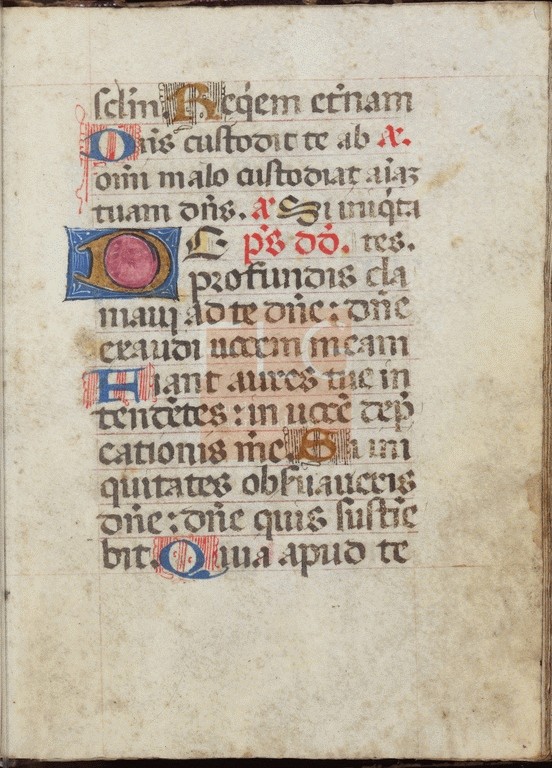 sclm. Reqem eternam
Dns custodit te ab a.
omi malo custodiat aiaz
tuam dns. a Si iniqta
DE ps dd. tes.
profundis cla
maui ad te dne : dne
exaudi uocem meam
Fiant aures tue in
tendetes : in uoce dep
cationis mee. Si ini
quitates obseruaueris
dne : dne quis sustie
bit. Quia apud te